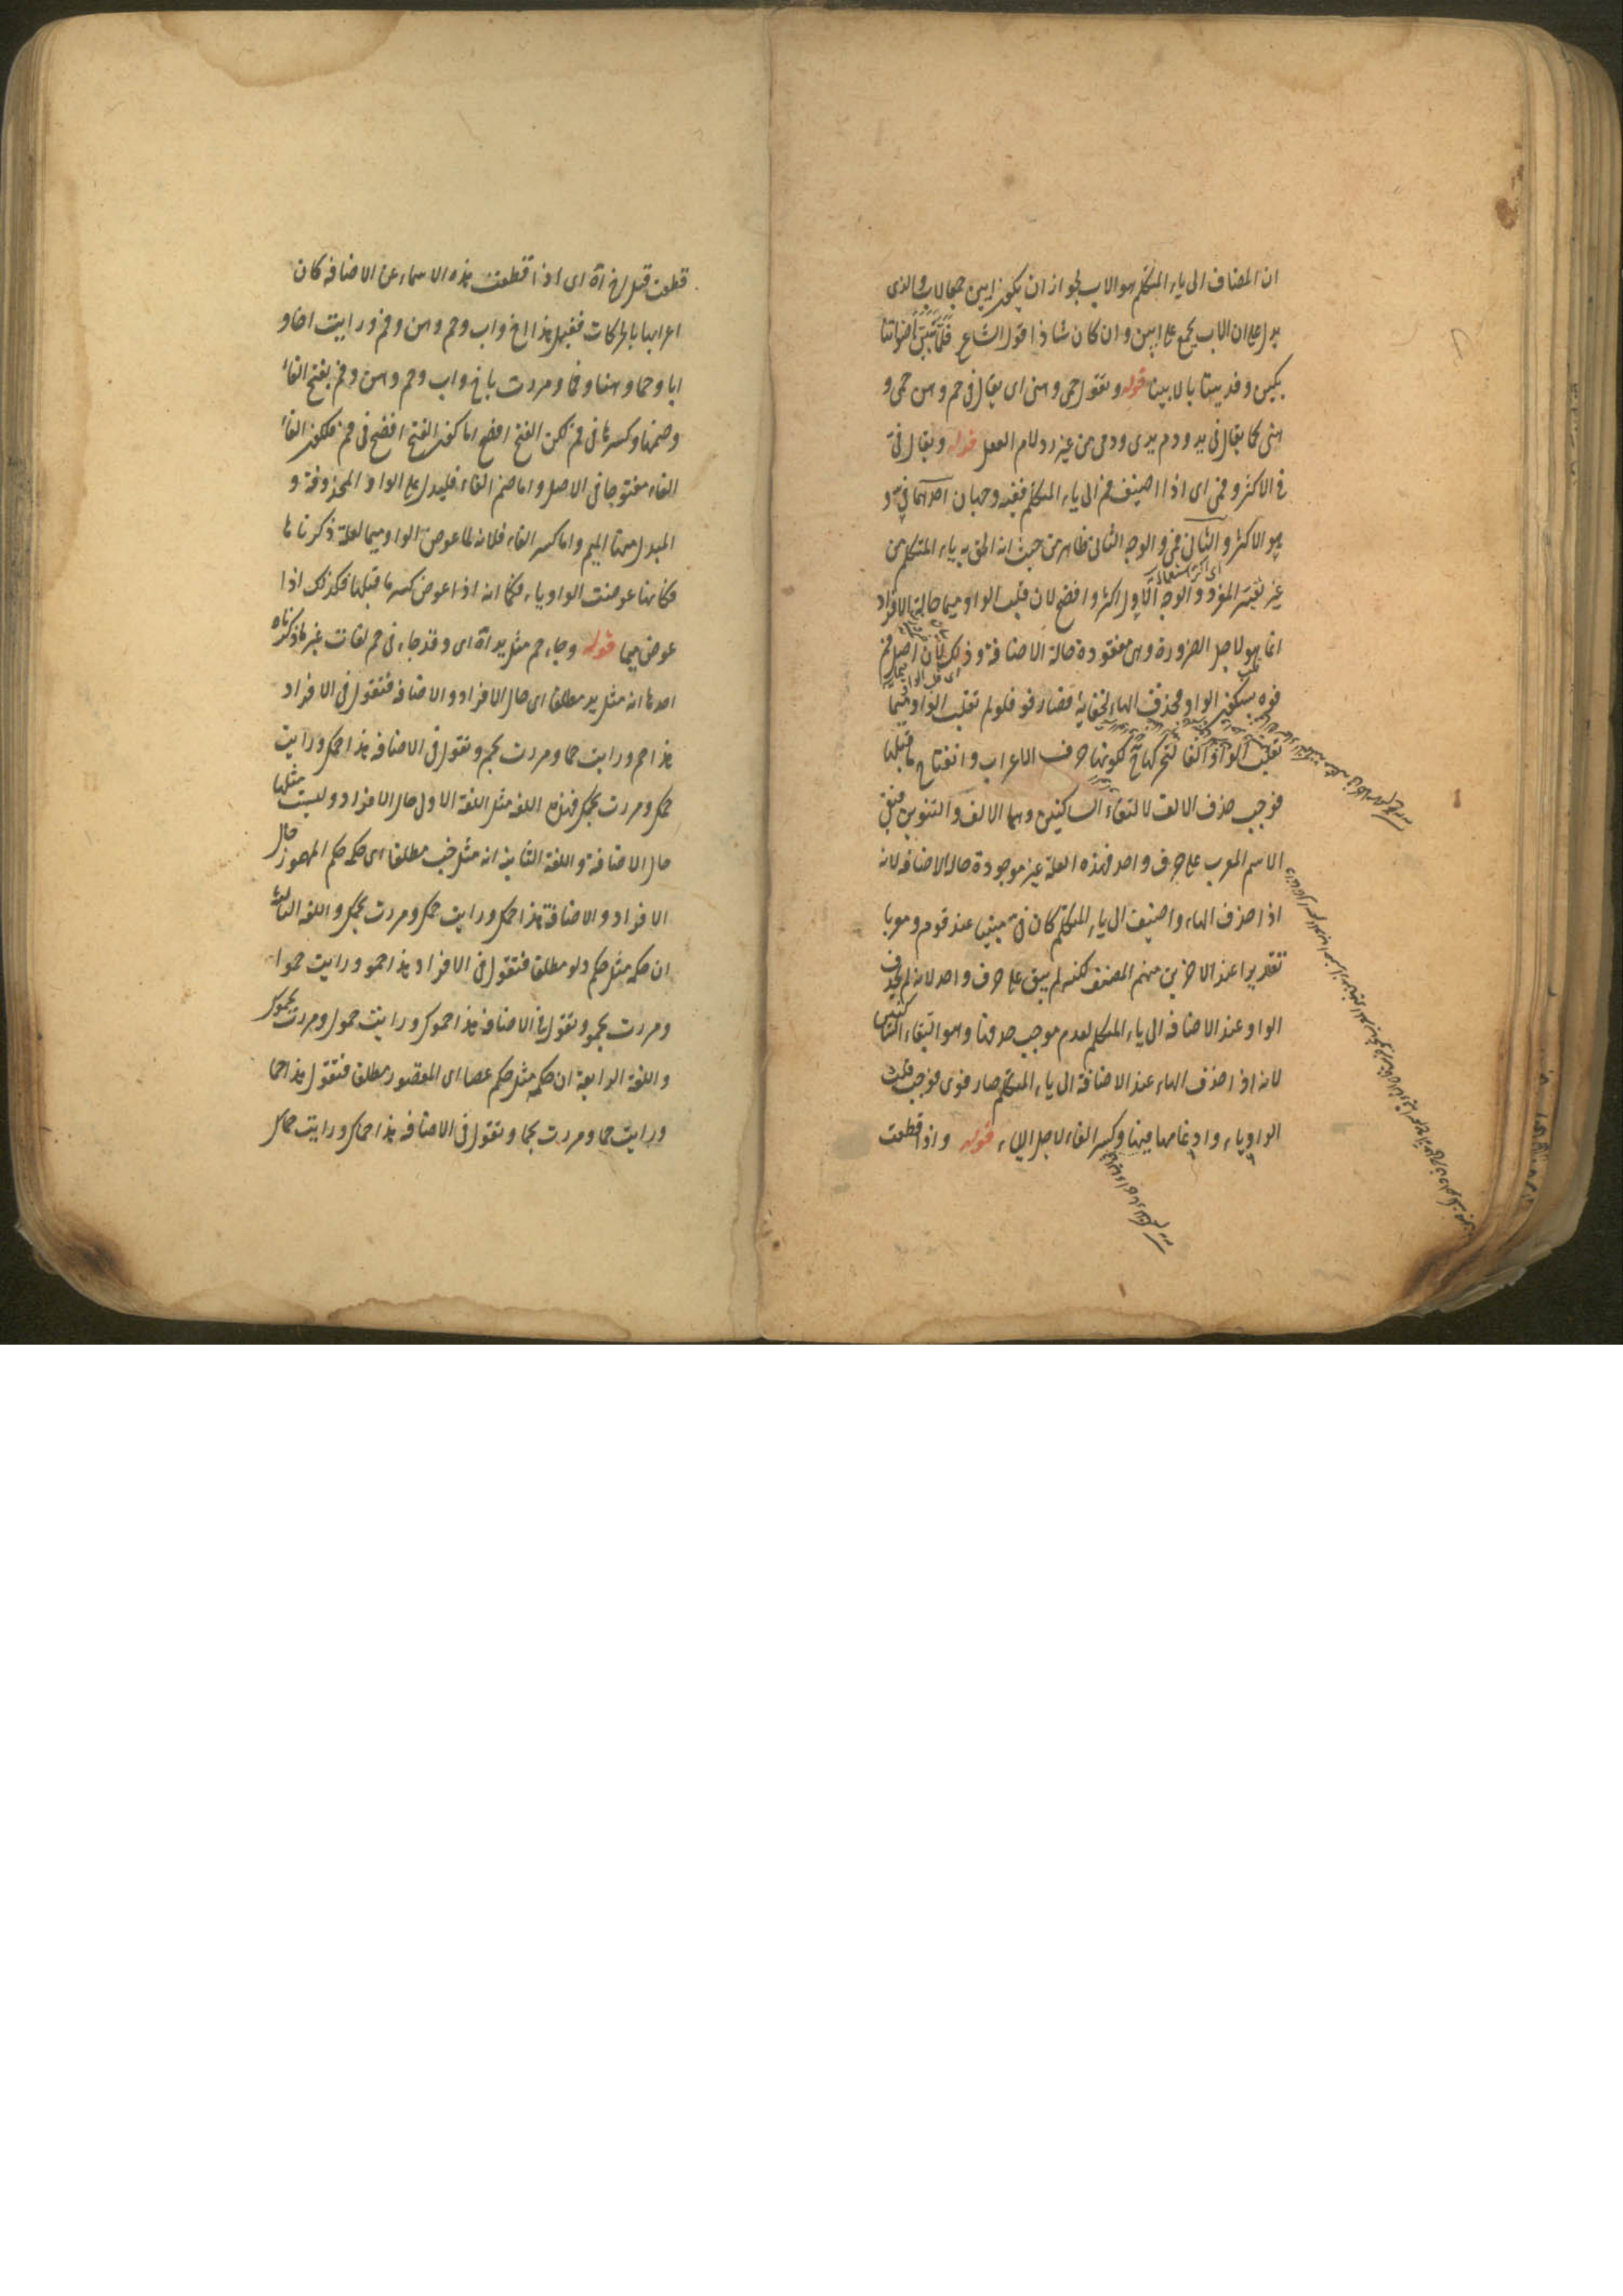 ان المضاف الى ياء المتكلم هو الاب لجواز ان يكون ابين جمالاب والذى
يدل على ان الاب يجمع على ابين وان كان شاذا قول الشاعر فلما تبين اصواتنا
بكين وفديننا بالابينا قوله وتقول حمى وهنى اى يقال فى حم وهن حمى و
هنى كما يقال فى يد ودم يدى ودمى من غير رد لام الفعل قوله ويقال فىّ
فى الاكثر وفمى اى اذا اضيف فم الى ياء المتكلم ففيه وجهان احدهما فىّ و
هو الاكثر والثانى فمى والوجه الثانى ظاهر من حيث انه الحق به ياء المتكلم من
غير تغيير المفرد والوجه الاول اكثر وافصح لان قلب الواو ميما حالة الافراد
اى اكثر استعمالا
انما هو لاجل الضرورة وهى مفقودة حالة الاضافة وذلك لان اصل فم
فوه بسكون الواو فحذف الهاء لخفائه فصار فو فلو لم تقلب الواو ميما
تقلب الواو الفا لتحركها لكونها حرف الاعراب وانفتاح ما قبلها
فوجب حذف الالف لالتقاء الساكنين وهما الالف والتنوين فبقى
الاسم المعرب على حرف واحد فهذه العلة غير موجودة حال الاضافه لانه
اذا حذف الهاء واضيف الى ياء المتكلم كان فىّ مبنيا عند قوم ومعربا
تقديرا عند الاخرين منهم المصنف لكنه لم يبق على حرف واحد لانه لم يحذف
الواو عند الاضافه الى ياء المتكلم لعدم موجب حذفها وهو التقاء الساكنين
لانه اذا حذف الهاء عند الاضافة الى ياء المتكلم صار فوى فوجب قلب
الواو ياء وادغامها فيها وكسر الفاء لاجل الياء قوله واذا قطعت
قطعت قيل اخ آه اى اذا قطعت هذه الاسماء عن الاضافه كان
اعرابها بالحركات فقيل هذا اخ واب وحم وهن وفم ورايت اخا و
ابا وحما وهنا وفما ومررت باخ واب وحم وهن وفم بفتح الفاء
وضمها وكسرها فى فم لكن الفتح افصح اما كون الفتح افصح فى فم فلكون الفاء
الفاء مفتوحا فى الاصل واما ضم الفاء فليدل على الواو المحذوفة و
المبدل منها الميم واما كسر الفاء فلانه لما عوض الواو ميما لعلة ذكرناها
فكانها عوضت الواو ياء فكما انه اذا عوض كسر ما قبلها فكذلك اذا
عوض ميما قوله وجاء حم مثل يد آه اى وقد جاء فى حم لغات غير ما ذكرناه
احدها انه مثل يد مطلقا اى حال الافراد والاضافه فتقول فى الافراد
هذا حم ورايت حما ومررت بحم وتقول فى الاضافه هذا حمك ورايت
حمك ومررت بحمك فهذه اللغه مثل اللغة الاولى حال الافراد وليست مثلها
حال الاضافة واللغة الثانية انه مثل خبء مطلقا اى حكمه حكم المهموز حال
الافراد والاضافة هذا حمؤك ورايت حمأك ومررت بحمئك واللغه الثالثة
ان حكمه مثل حكم دلو مطلقا فتقول فى الافراد هذا حمو ورايت حموا
ومررت بحمو وتقول فى الاضافه هذا حموك ورايت حموك ومررت بحموك
واللغة الرابعة ان حكمه مثل حكم عصا اى المقصور مطلقا فتقول هذا حما
ورايت حما ومررت بحما وتقول فى الاضافه هذا حماك ورايت حماك